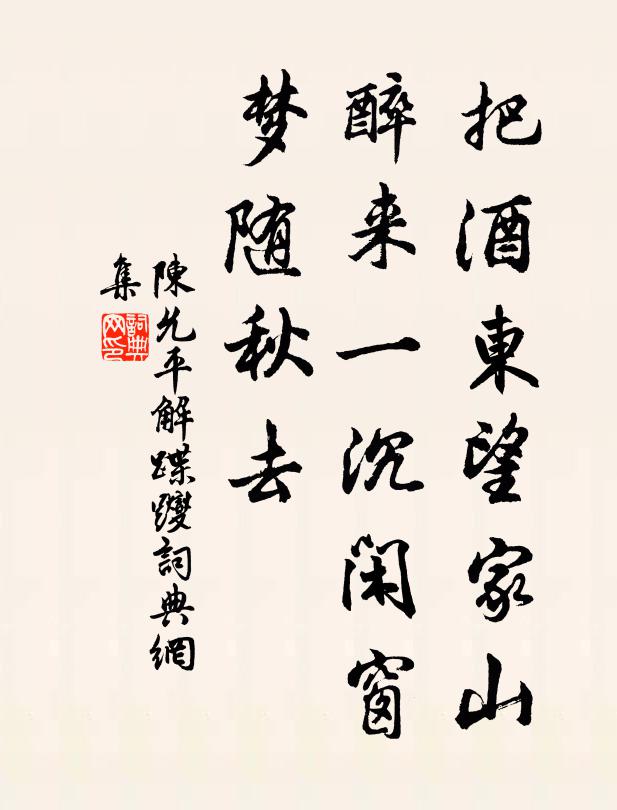 把酒東望家山
醉来一沉闲窗
梦随秋去
陳允平解蹀躞詞典網
集
詞典
网印